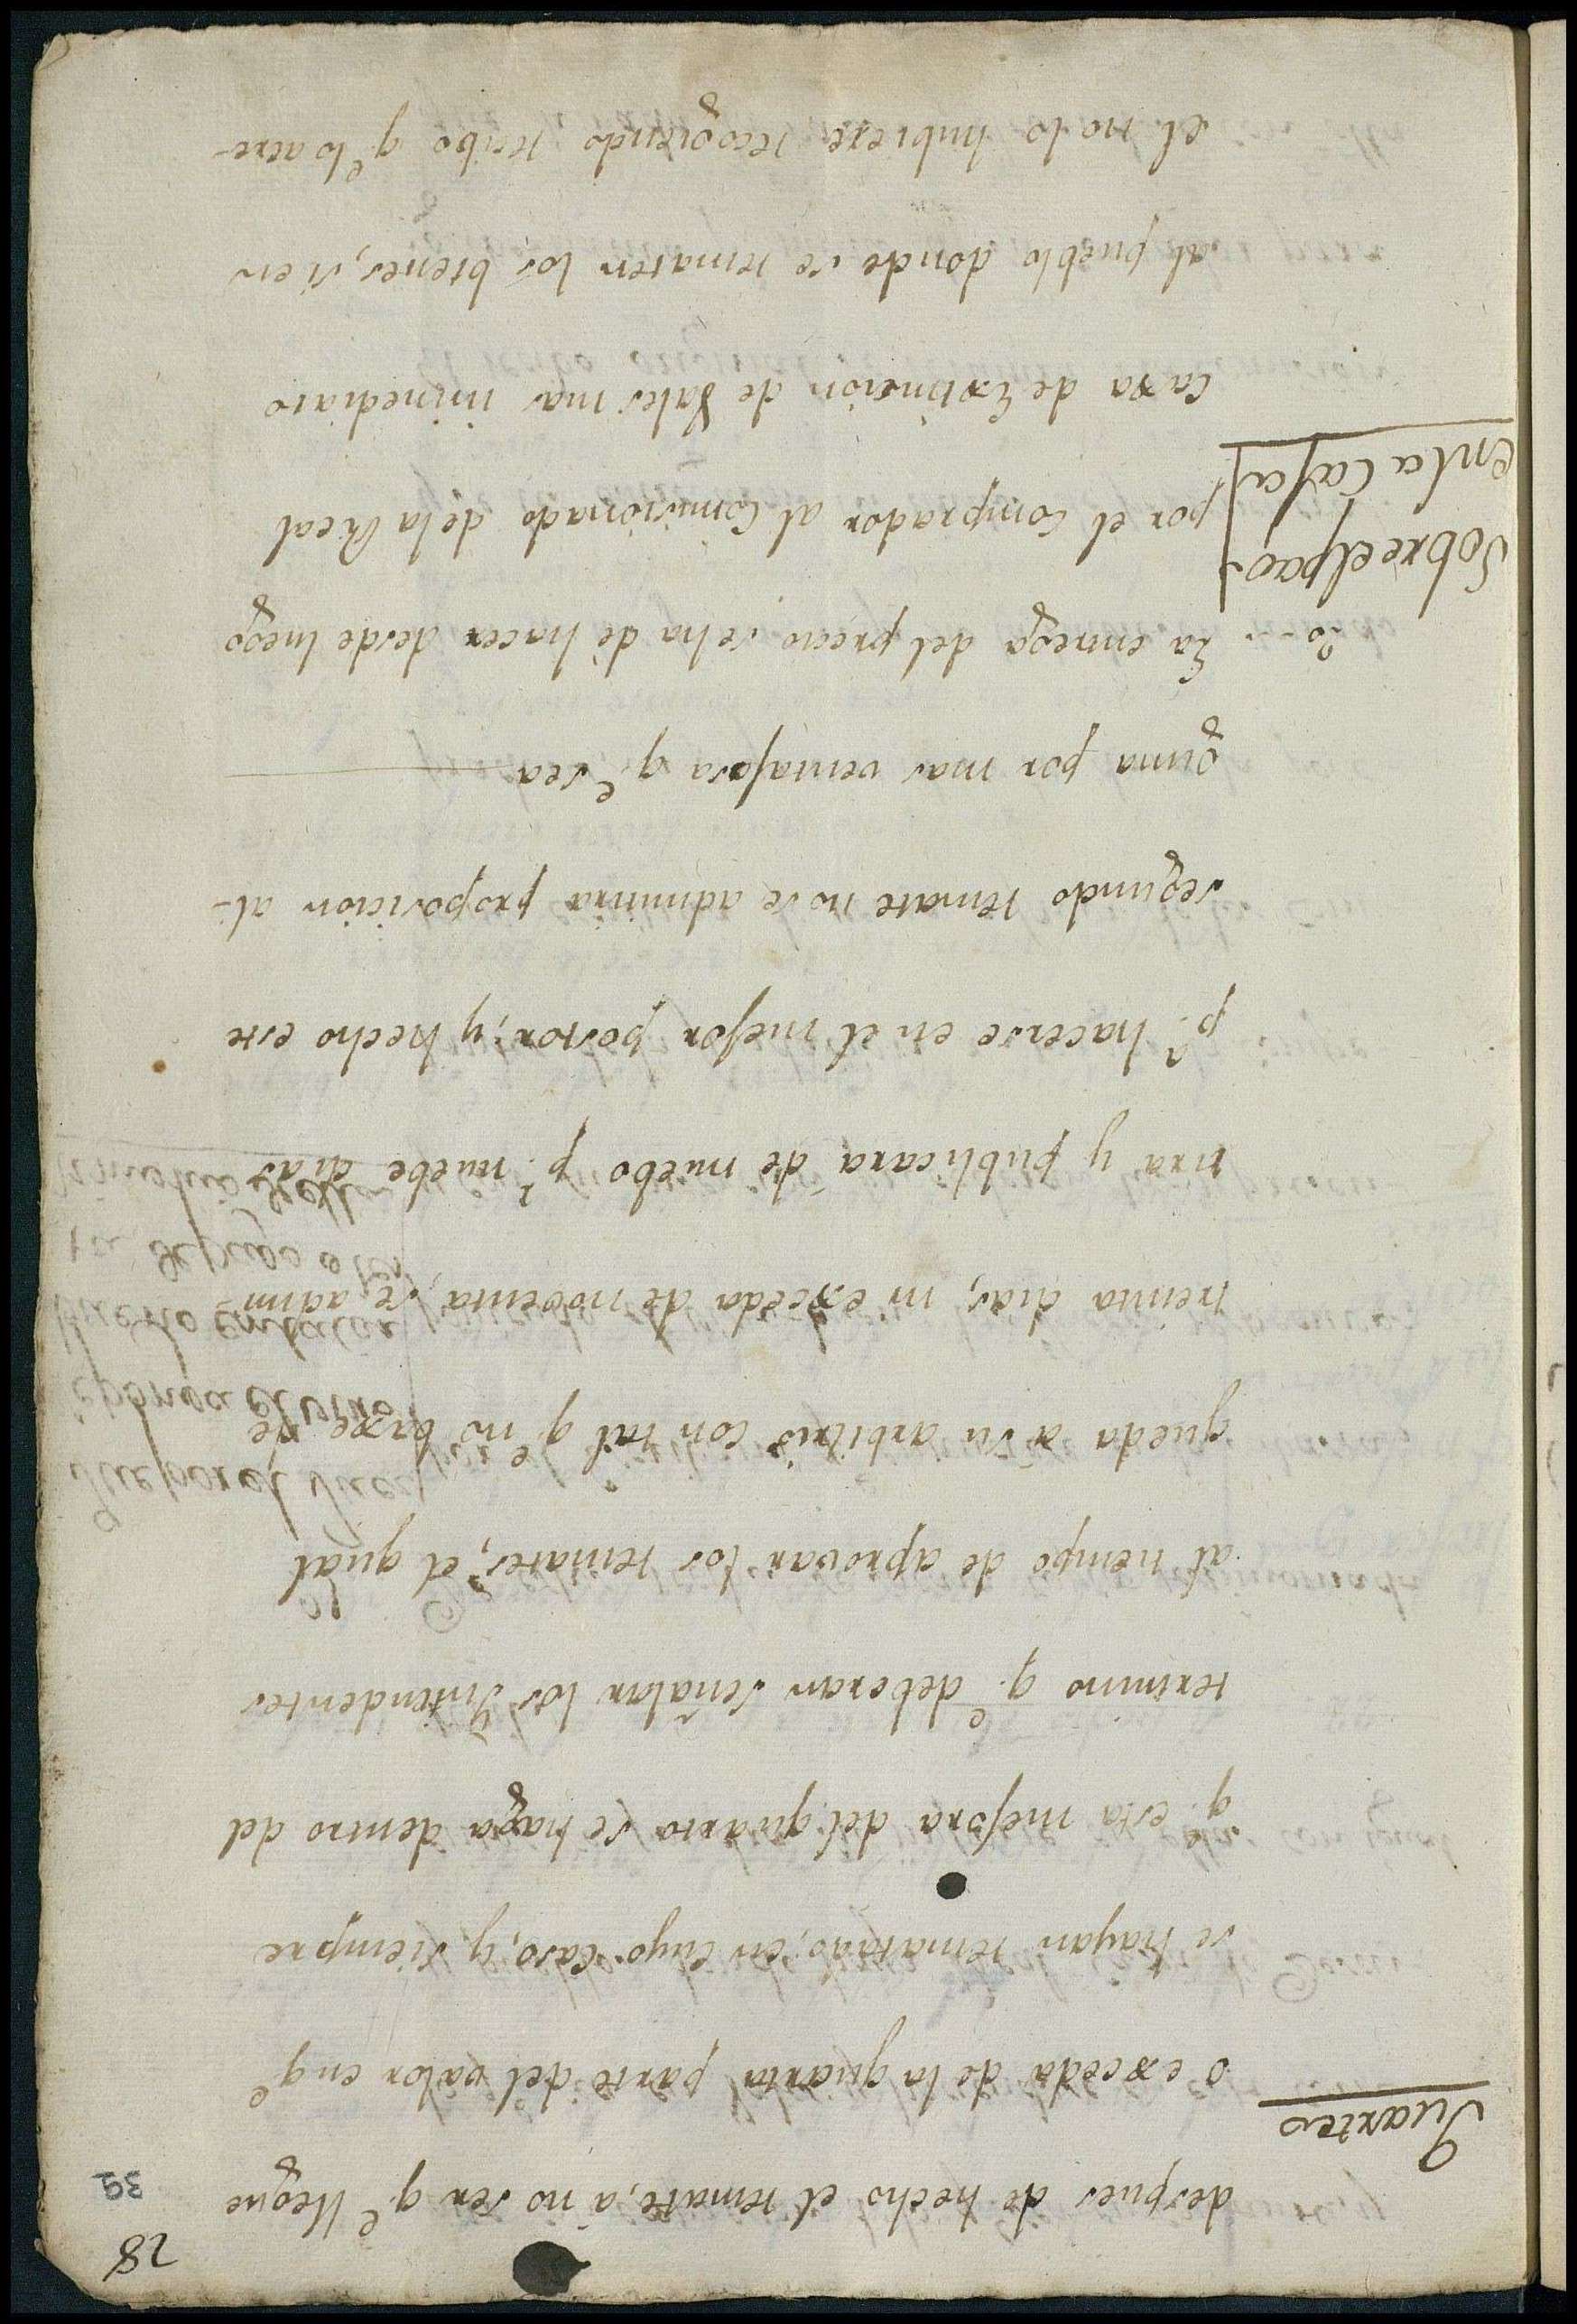 28
39
despues de hecho el remate, à no ser q.e llegue
Quartes
o exceda de la quarta parte del valor en q.e
se hayan rematado; en cuyo caso, y siempre
q.e esta mejora del quarto se haga dentro del
termino q.e deberan señalar los Intendentes
al tiempo de aprovar los remates, el qual
queda a su arbitrio con tal q.e no baxe de
treinta dias, ni exceda de noventa, se admi-
tira y publicarà de nuebo p.r nuebe dias
p.a hacerse en el mejor postor; y hecho este
segundo remate no se admitira proposicion al-
guna por mas ventajosa q.e sea
20.. La entrega del precio se ha de hacer desde luego
Sobre el pao-
en la Caja
por el Comprador al Comisionado de la Real
Caxa de Extincion de Vales mas inmediato
al pueblo donde se rematen los bienes, si en
el no lo hubiere recogiendo recibo q.e lo acre-